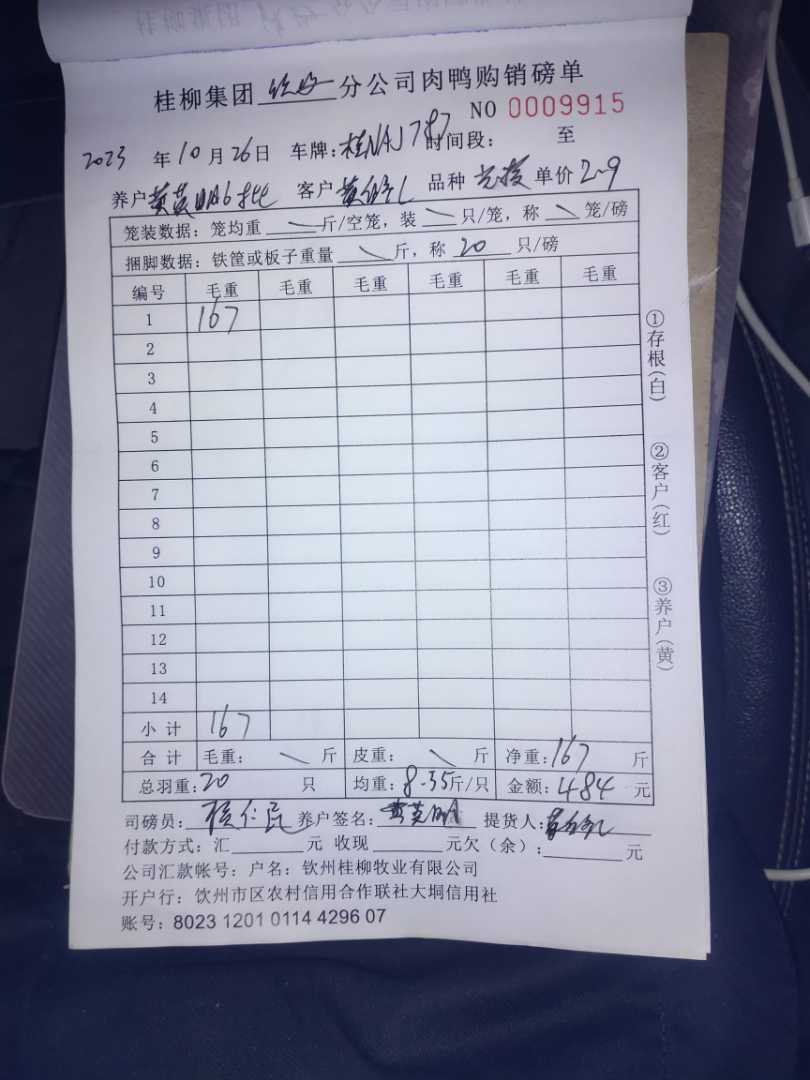 桂柳集团 钦州 分公司肉鸭购销磅单
NO 0009915
2023 年 10 月 26 日 车牌: 桂NAJ787 时间段: 至
养户 黄英明6批 客户 品种 单价 2-9
笼装数据: 笼均重 斤/空笼, 装 只/笼, 称 笼/磅
捆脚数据: 铁筐或板子重量 斤, 称 20 只/磅
编号 毛重 毛重 毛重 毛重 毛重 毛重
1 167
2
3
4
5
6
7
8
9
10
11
12
13
14
小 计 167
合 计 毛重: 斤 皮重: 斤 净重: 167 斤
总羽重: 20 只 均重: 8-35 斤/只 金额: 484 元
司磅员: 养户签名: 黄英明 提货人:
付款方式: 汇 元 收现 元欠(余): 元
公司汇款帐号: 户名: 钦州桂柳牧业有限公司
开户行: 钦州市区农村信用合作联社大垌信用社
账号: 8023 1201 0114 4296 07
①存根(白)
②客户(红)
③养户(黄)